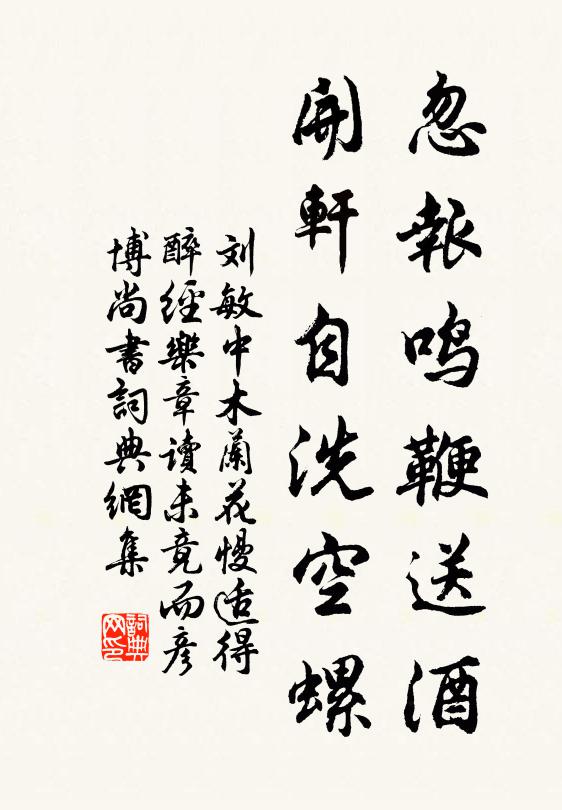 忽報鸣鞭送酒
開軒自洗空螺
刘敏中木蘭花慢适得
醉經樂章讀未竟而彦
博尚書詞典網集
詞典
网印